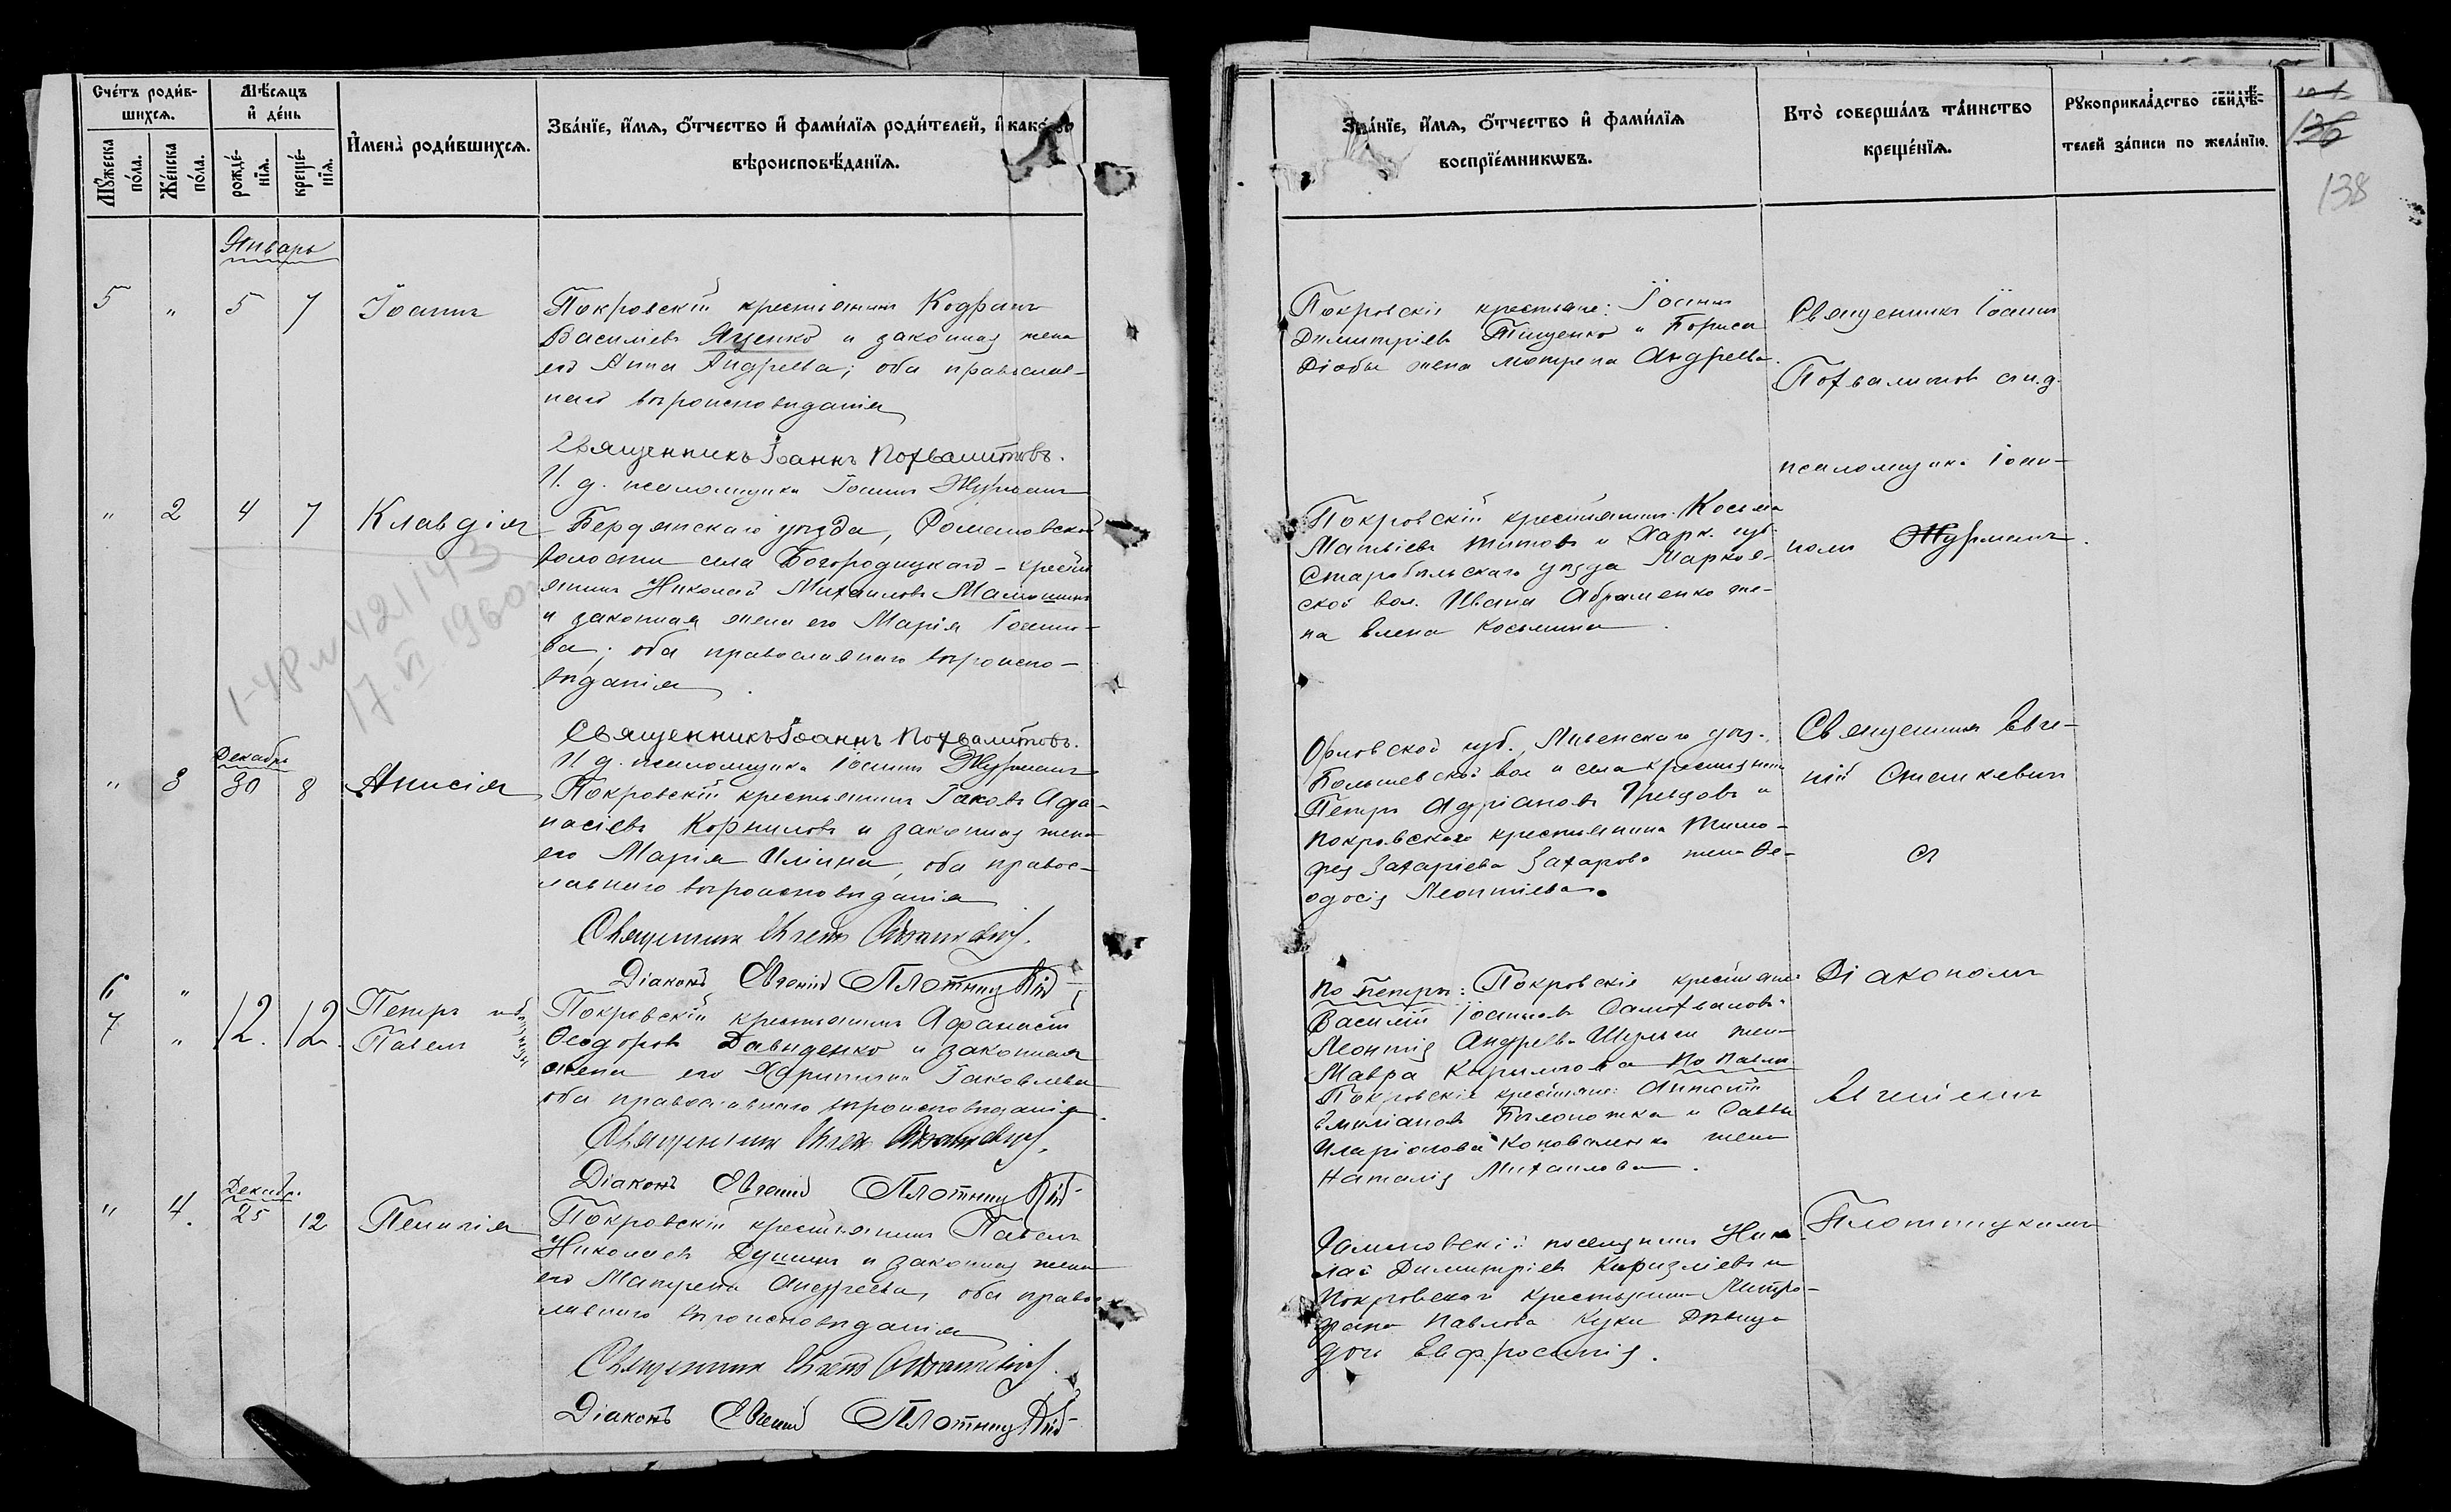 Счетъ родив-
шихся.
Мѣсяцъ
и день
Мужеска пола.
Женска пола.
рожде-
нія.
креще-
нія.
Имена родившихся.
Званіе, имя, отчество и фамилія родителей, и какого
вѣроисповѣданія.
Январь
5 " 5 7 Іоаннъ
Покровскій крестьянинъ
Василіевъ Яценко и законная жена
его Анна Андреева; оба православ-
наго вѣроисповѣданія
Священникъ Іоаннъ Похвалитовъ.
И. д. псаломщика Іоаннъ
" 2 4 7 Клавдія
Бердянскаго уѣзда,
волости села Богородицкаго – крестья
янинъ Николай Михаиловъ
и законная жена его Марія Іоанно-
ва; оба православнаго вѣроиспо-
вѣданія.
1-ЧР № 421143
17.VI 1960
Священникъ Іоаннъ Похвалитовъ.
И д. псаломщика Іоаннъ
Декабрь
" 3 30 8 Анисія
Покровскій крестьянинъ Іаковъ Афа-
насіевъ Корниловъ и законная жена
его Марія Иліина, оба правос-
лавнаго вѣроисповѣданія
Священникъ
Діаконъ Евгеній Плотницкій
6 "
7 "
12. 12.
Петръ и
Павелъ
близнецы
Покровскій крестьянинъ Афанасій
Ѳеодоровъ Давиденко и законная
жена его Іаковлева
оба православнаго вѣроисповѣданія.
Священникъ
Діаконъ Евгеній Плотницкій
Декабр.
" 4. 25 12 Пелагія
Покровскій крестьянинъ Павелъ
Николаевъ Душинъ и законная жена
его Матрена Андреева, оба право-
лавнаго вѣроисповѣданія
Священникъ
Діаконъ Евгеній Плотницкій
Званіе, имя, отчество и фамилія
воспріемниковъ.
Кто совершалъ таинство
крещенія.
Рукоприкладство свидѣ-
телей записи по желанію.
136
138
Покровскіе крестьяне: Іоаннъ
Димитріевъ Тищенко и Бориса
Діобы жена Матрена Андреева.
Священникъ Іоаннъ
Похвалитовъ с и.д.
псаломщика Іоан-
номъ
Покровскій крестьянинъ Косьма
Матвіевъ Титовъ и Харк. губ.
Старобѣльскаго уѣзда Марков-
ской вол. Ивана Абраменко же-
на Елена Косьмина.
Орловской губ., Ливенскаго уѣз.
вол и села крестьянинъ
Петръ Адріановъ и
Покровскаго крестьянина Тимо-
фея Захаріева Захарова жена Ѳе-
одосія Леонтіева.
Священникъ Евге-
ній
съ
По Петрѣ: Покровскіе крестьяне
Василій Іоанновъ Самохваловъ
Леонтія Андреева Шульги жена
Мавра Кириллова По Павлѣ
Покровскіе крестьяне: Антоній
Емиліановъ Бѣлоножка и Саввы
Иларіонова Коноваленко жена
Наталія Михаилова.
Діакономъ
Евгеніемъ
поселянинъ Нико-
лай Димитріевъ и
Покровскаго крестьянина Митро-
фана Павлова Куки дѣвица
дочь Евфросинія.
Плотницкимъ